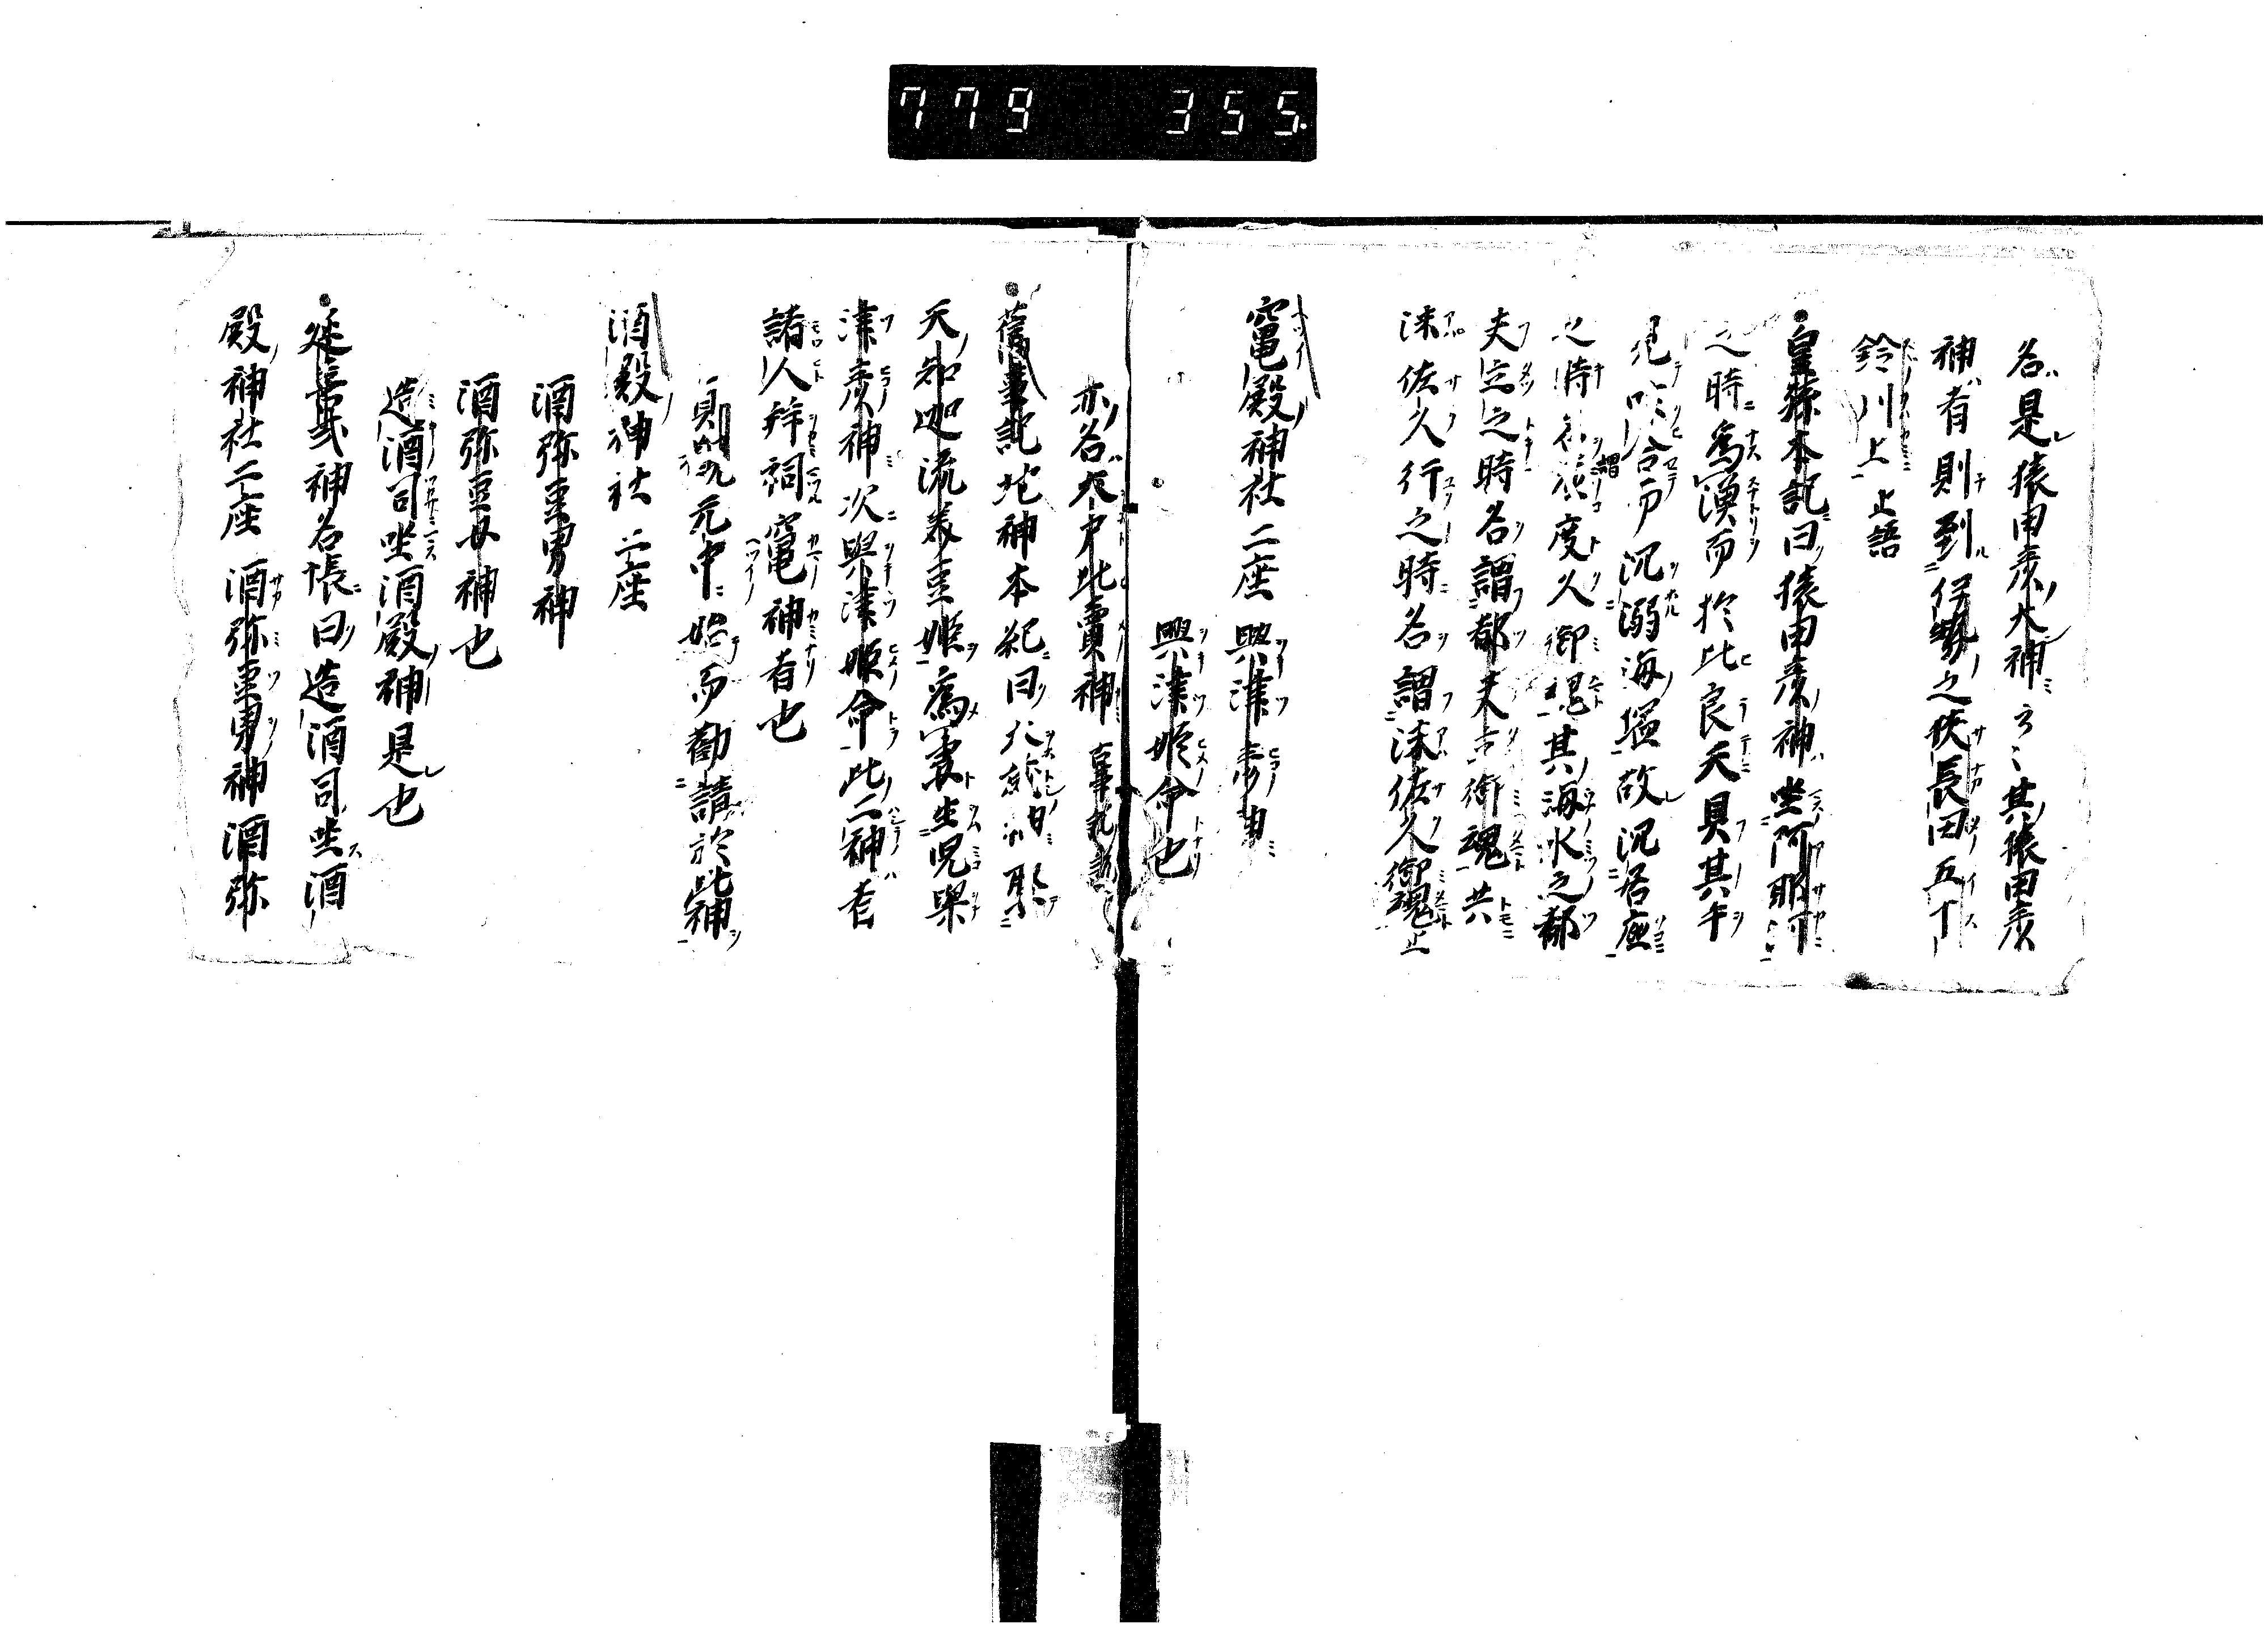 779 355.
名是猿田彦大神云々其猿田彦
神者則到伊勢之狭長田五十
鈴川上 上語
皇孫本記曰猿田彦神坐阿耶訶
之時為漁而於比良夫貝其手
見咋合而沉溺海塩故沉居底
之時名謂底度久御魂其海水之都
夫立之時名謂都夫立御魂其
沫佐久行之時名謂沫佐久御魂上
竃殿神社二座 興津彦神
興津姫命也
亦名大戸比賣神
舊事記地神本紀曰大歳神娶
天知迦流美豆姫為妻生児奥
津彦神次奥津姫命此二神者
諸人拜祠竃神者也
貞元中始而勧請於此神
酒殿神社二座
酒弥豆男神
酒弥豆女神也
造酒司坐酒殿神是也
延喜式神名帳曰造酒司坐酒
殿神社二座 酒弥豆男神酒弥